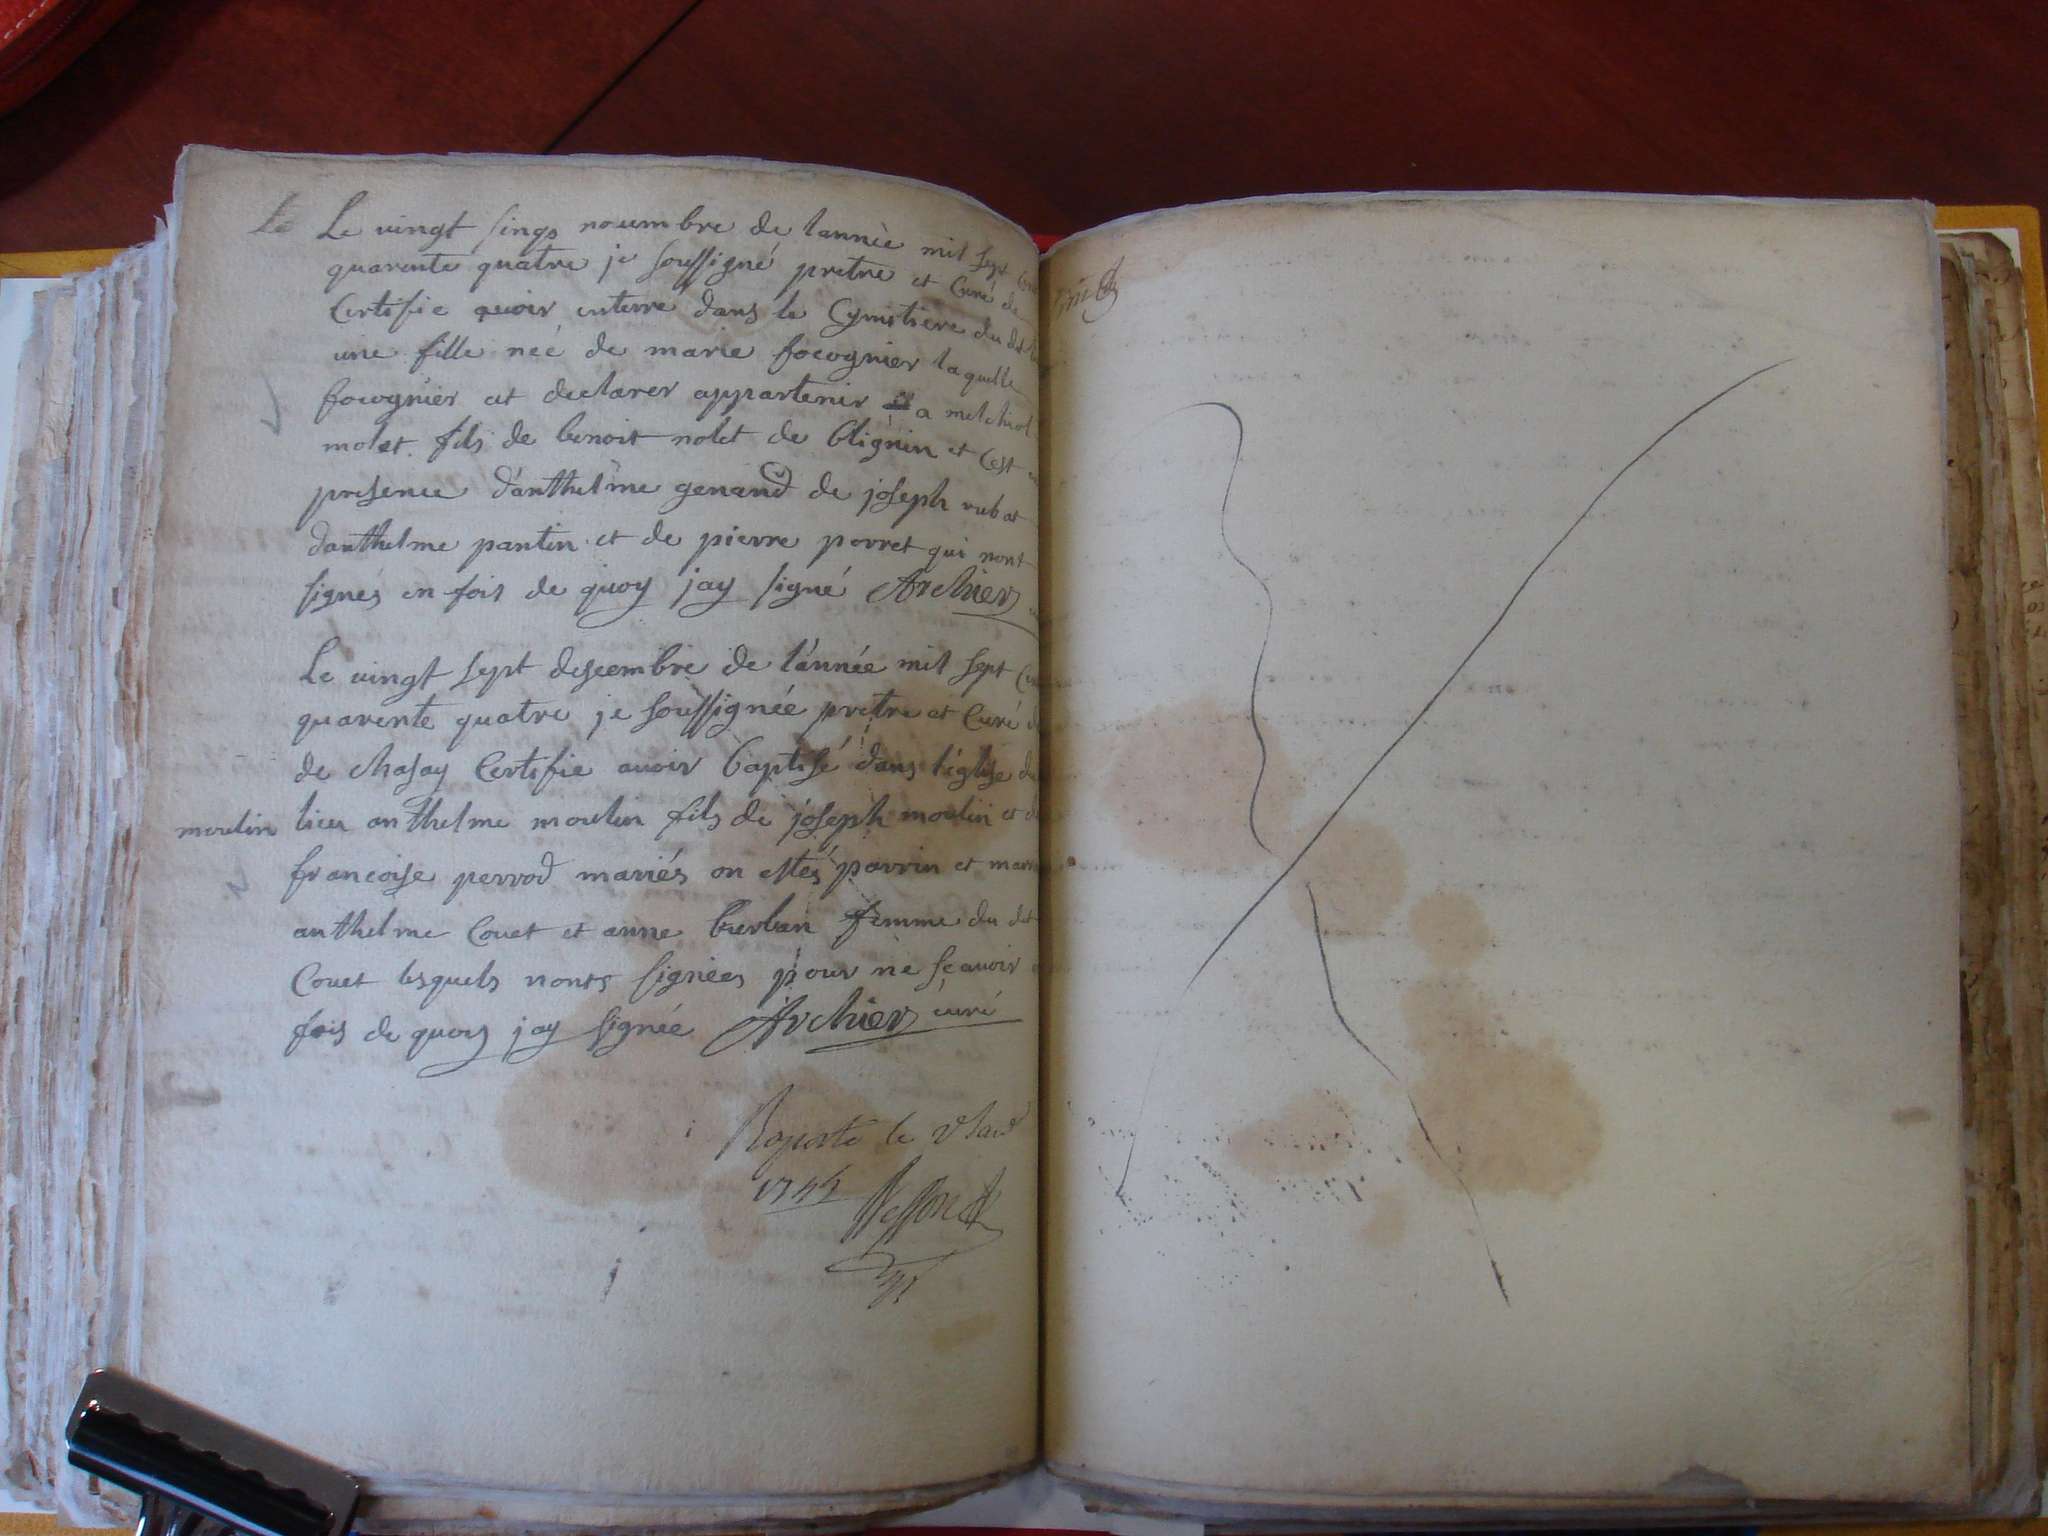 Le vingt sinqs nouembre de lannèe mil sept
quarente quatre je soussigné pretre et Curé de
Certifie auoir enterre dans le Cymitiere du dit
une fille neé de marie focognier laquelle
focognier at declarer appartenir a melchiol
molet fils de benoit nolet de blignin et Cest
presence d'anthelme genand de joseph rubat
danthelme pantin et de pierre porret qui nont
signés en fois de quoy jay signé Archier
Le vingt sept descembre de l'année mil sept
quarente quatre je soussignée pretre et Curé
de chasay Certifie auoir baptisé dans l'eglise du
moulin lieu anthelme moulin fils de joseph moulin et
francoise perrod mariés on estés parrin et
anthelme Couet et anne burlan femme du dit
Couet lesquels nonts signées pour ne scauoir
fois de quoy jay signée Archier curé
Raporté le